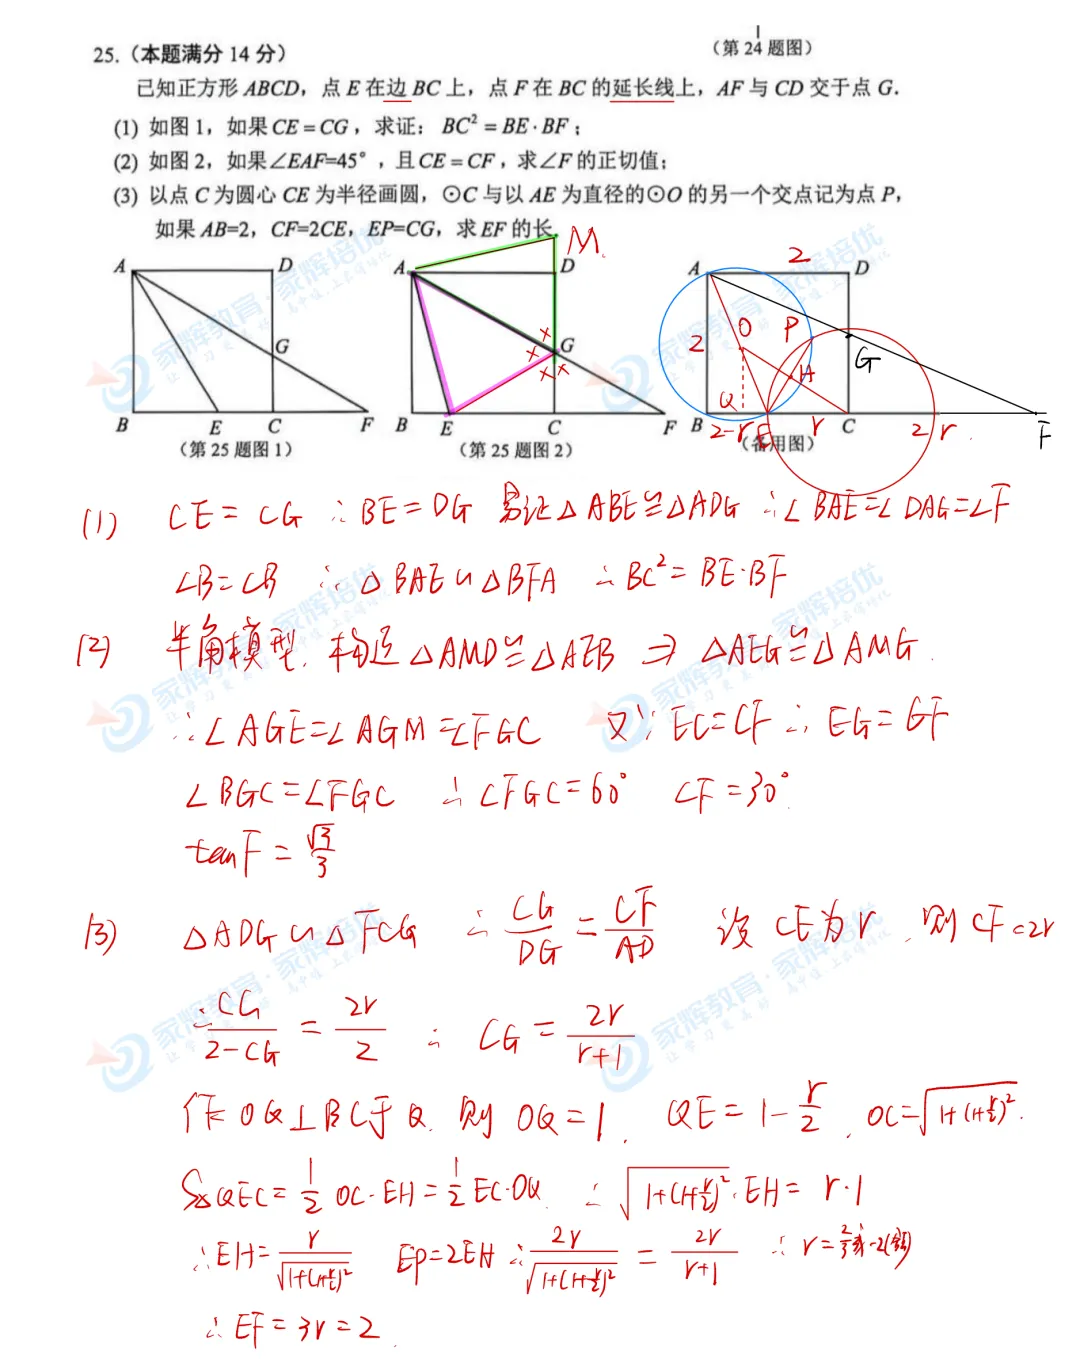 (第 24 题图)
25.(本题满分 14 分)
已知正方形 ABCD,点 E 在边 BC 上,点 F 在 BC 的延长线上,AF 与 CD 交于点 G.
(1) 如图 1,如果 CE = CG,求证:BC² = BE · BF;
(2) 如图 2,如果∠EAF=45°,且 CE = CF,求∠F 的正切值;
(3) 以点 C 为圆心 CE 为半径画圆,⊙C 与以 AE 为直径的⊙O 的另一个交点记为点 P,
如果 AB=2,CF=2CE,EP=CG,求 EF 的长.
A D G B E C F
(第 25 题图 1)
A M. D G B E C F × × × ×
(第 25 题图 2)
A 2 D O P 2 H G Q B 2-r E r C 2r F
(备用图)
(1) CE = CG ∴BE = DG 易证△ABE≌△ADG ∴∠BAE=∠DAG=∠F
∠B=∠B ∴△BAE∽△BFA ∴BC²=BE·BF
(2) 半角模型. 构造△AMD≌△AEB ⇒ △AEG≌△AMG.
∴∠AGE=∠AGM=∠FGC 又∵EC=CF ∴EG=GF
∠BGC=∠FGC ∴∠FGC=60° ∠F=30°.
tanF=√3/3
(3) △ADG∽△FCG ∴CG/DG=CF/AD 设CE为r,则CF=2r
∴CG/(2-CG)=2r/2 ∴CG=2r/(r+1)
作OQ⊥BC于Q.则OQ=1, QE=1-r/2, OC=√(1+(1+r/2)²).
S△QEC=1/2 OC·EH=1/2 EC·OQ. ∴√(1+(1+r/2)²)·EH=r·1
∴EH=r/√(1+(1+r/2)²) EP=2EH ∴2r/√(1+(1+r/2)²)=2r/(r+1) ∴r=2/3或-2(舍)
∴EF=3r=2.
家辉教育·家辉培优
家辉教育·家辉培优
家辉教育·家辉培优
家辉教育·家辉培优
家辉教育·家辉培优
家辉教育·家辉培优
家辉教育·家辉培优
家辉教育·家辉培优